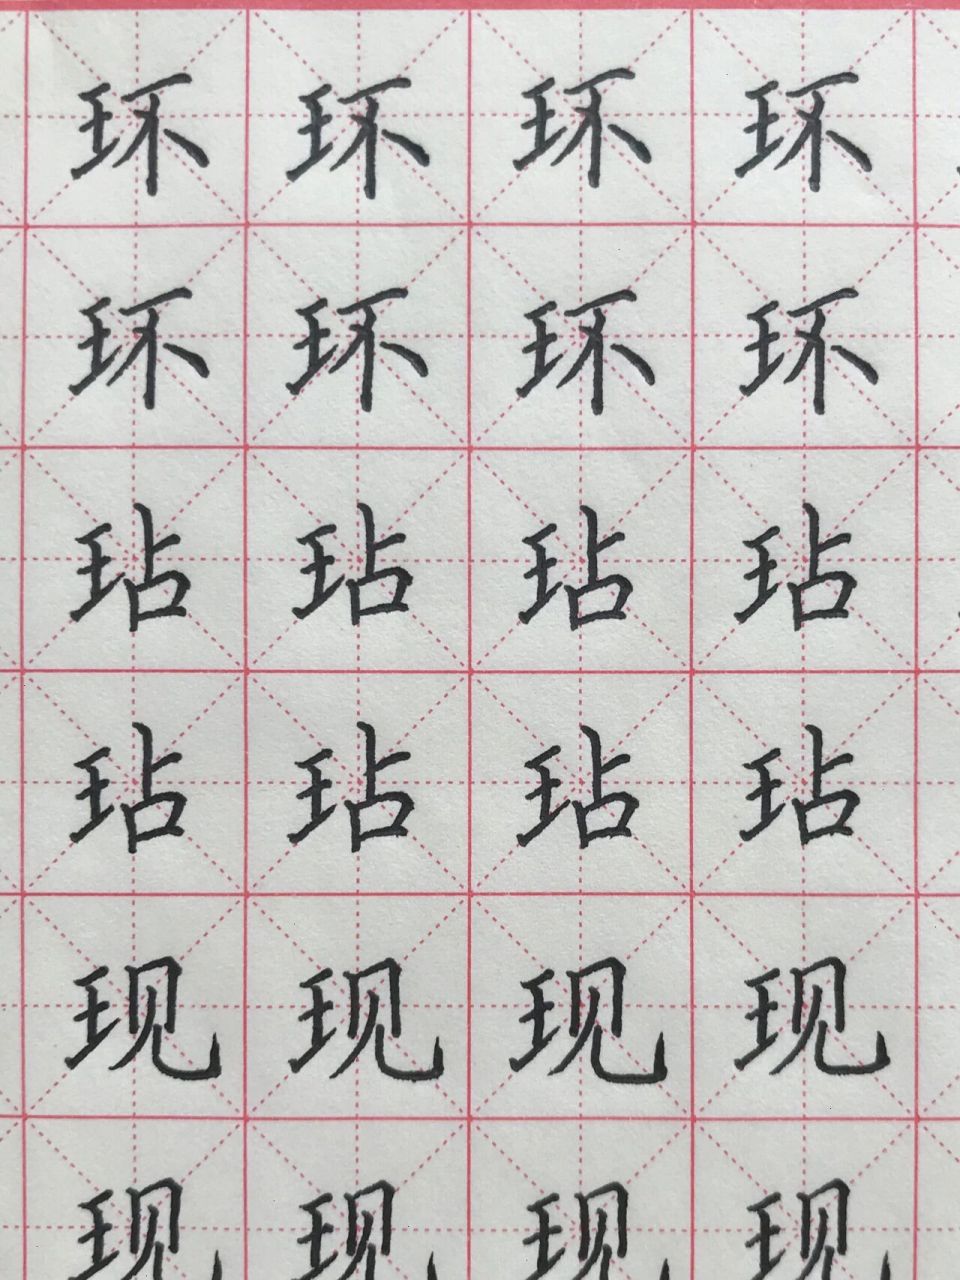 环环环环
环环环环
玷玷玷玷
玷玷玷玷
现现现现
现现现现